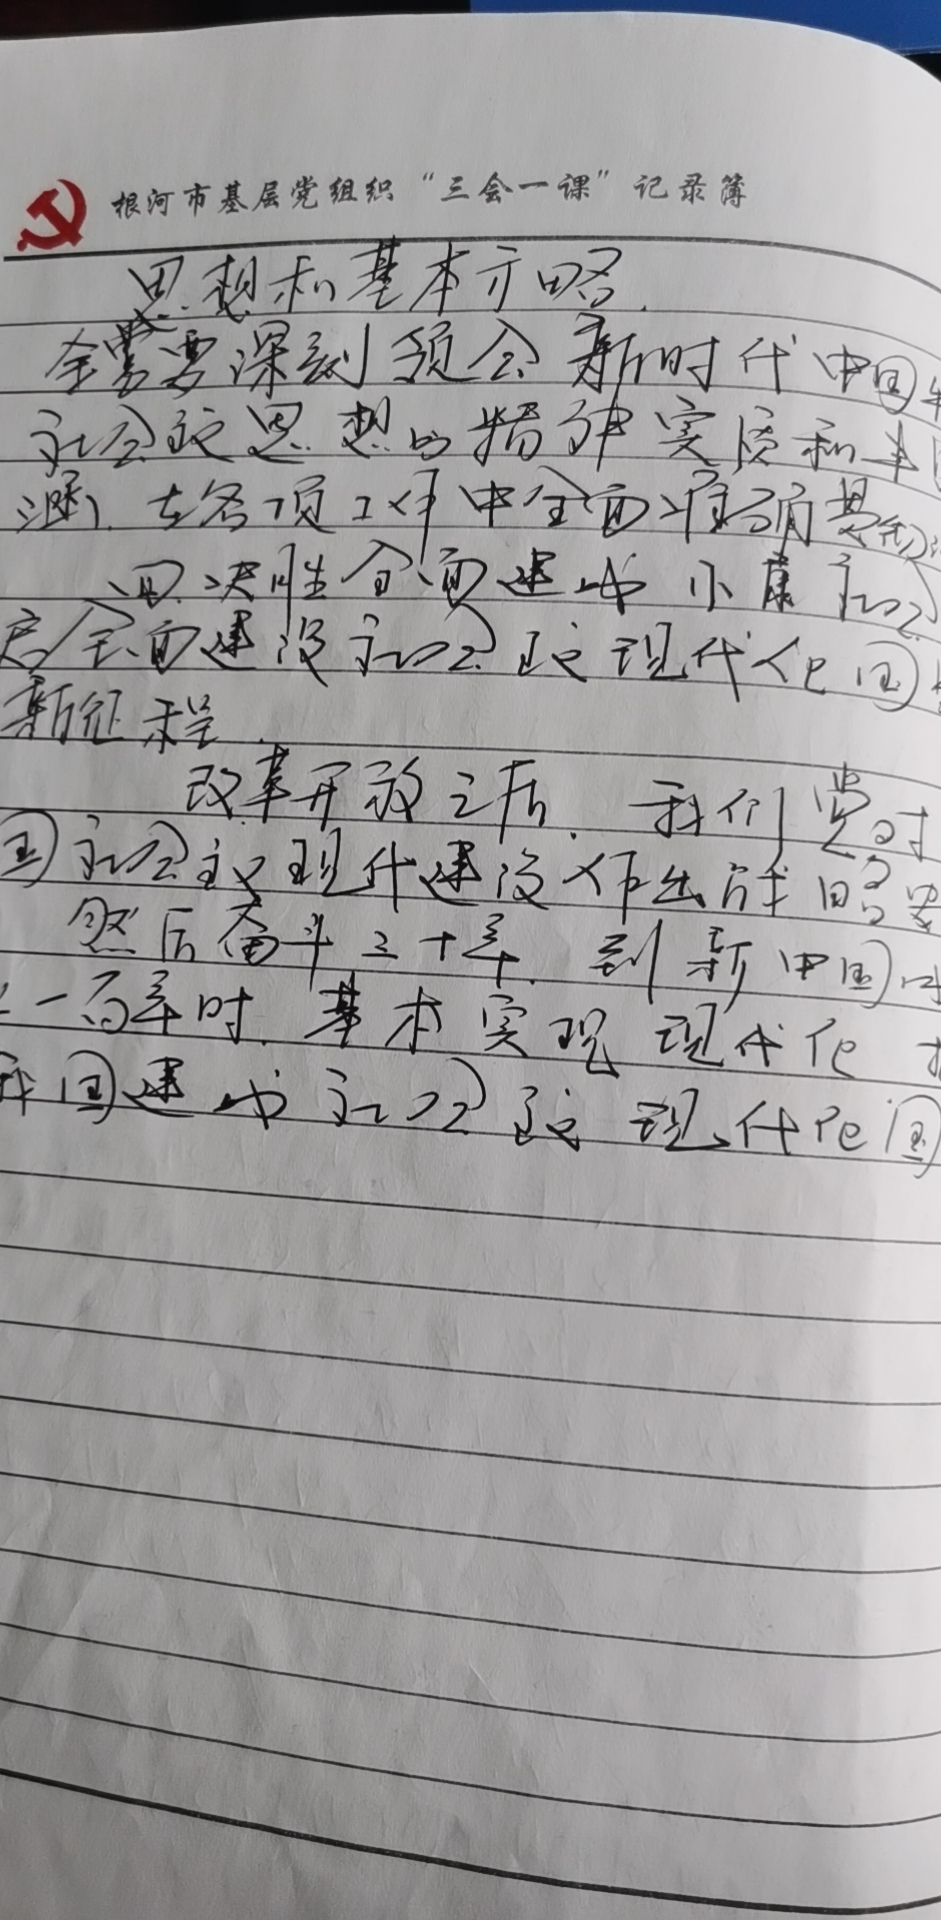 根河市基层党组织“三会一课”记录簿
思想和基本方略
全党要深刻领会新时代中国
社会主义思想的精神实质和丰
涵,在各项工作中全面准确贯彻
四.决胜全面建成小康社会
启全面建设社会主义现代化国
新征程.
改革开放之后.我们党对
国社会主义现代建设作出战略
然后奋斗三十年.到新中国
一百年时.基本实现现代化
我国建成社会主义现代化国